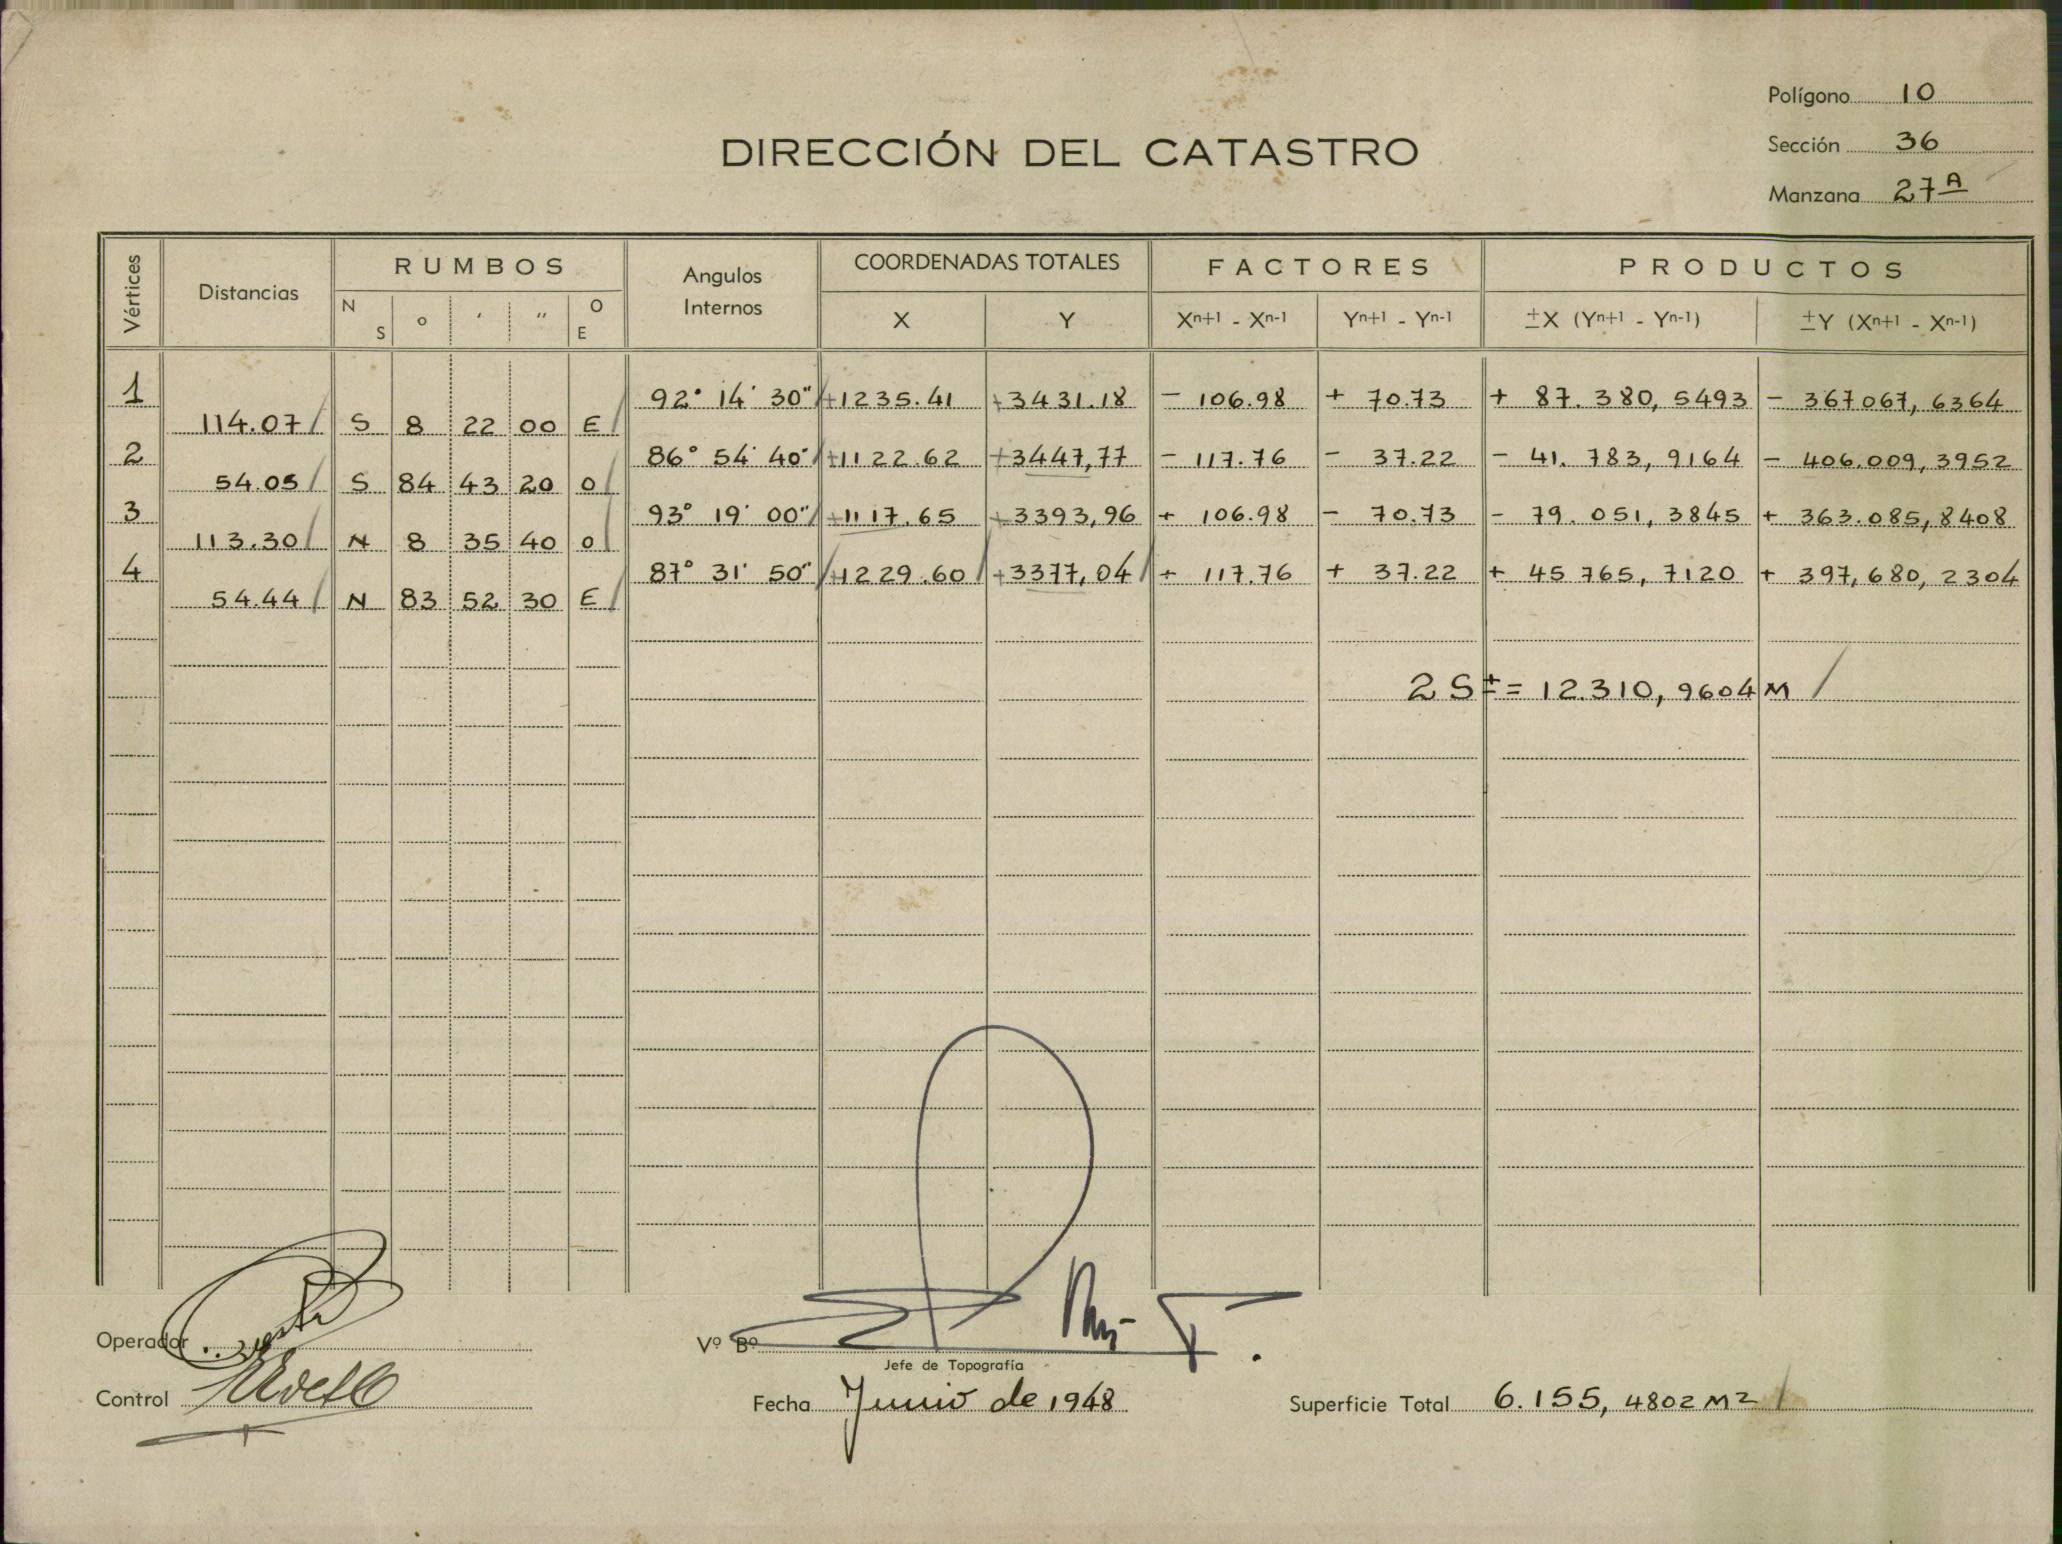 Polígono 10
DIRECCIÓN DEL CATASTRO
Sección 36
Manzana 27A
Vértices Distancias RUMBOS Angulos Internos COORDENADAS TOTALES FACTORES PRODUCTOS
N S o ‘ ‘‘ O E X Y Xn+1 - Xn-1 Yn+1 - Yn-1 ±X (Yn+1 - Yn-1) ±Y (Xn+1 - Xn-1)
1 92° 14' 30" +1235.41 +3431.18 - 106.98 + 70.73 + 87.380,5493 - 367067,6364
114.07 S 8 22 00 E
2 86° 54' 40" +1122.62 +3447,77 - 117.76 - 37.22 - 41.783,9164 - 406.009,3952
54.05 S 84 43 20 O
3 93° 19' 00" +1117.65 +3393,96 + 106.98 - 70.73 - 79.051,3845 + 363.085,8408
113.30 N 8 35 40 O
4 87° 31' 50" +1229.60 +3377,04 + 117.76 + 37.22 + 45765,7120 + 397,680,2304
54.44 N 83 52 30 E
2 S ± = 12.310,9604 M
Operador
Vº Bº
Jefe de Topografía
Control
Fecha Junio de 1948
Superficie Total 6.155,4802 M2